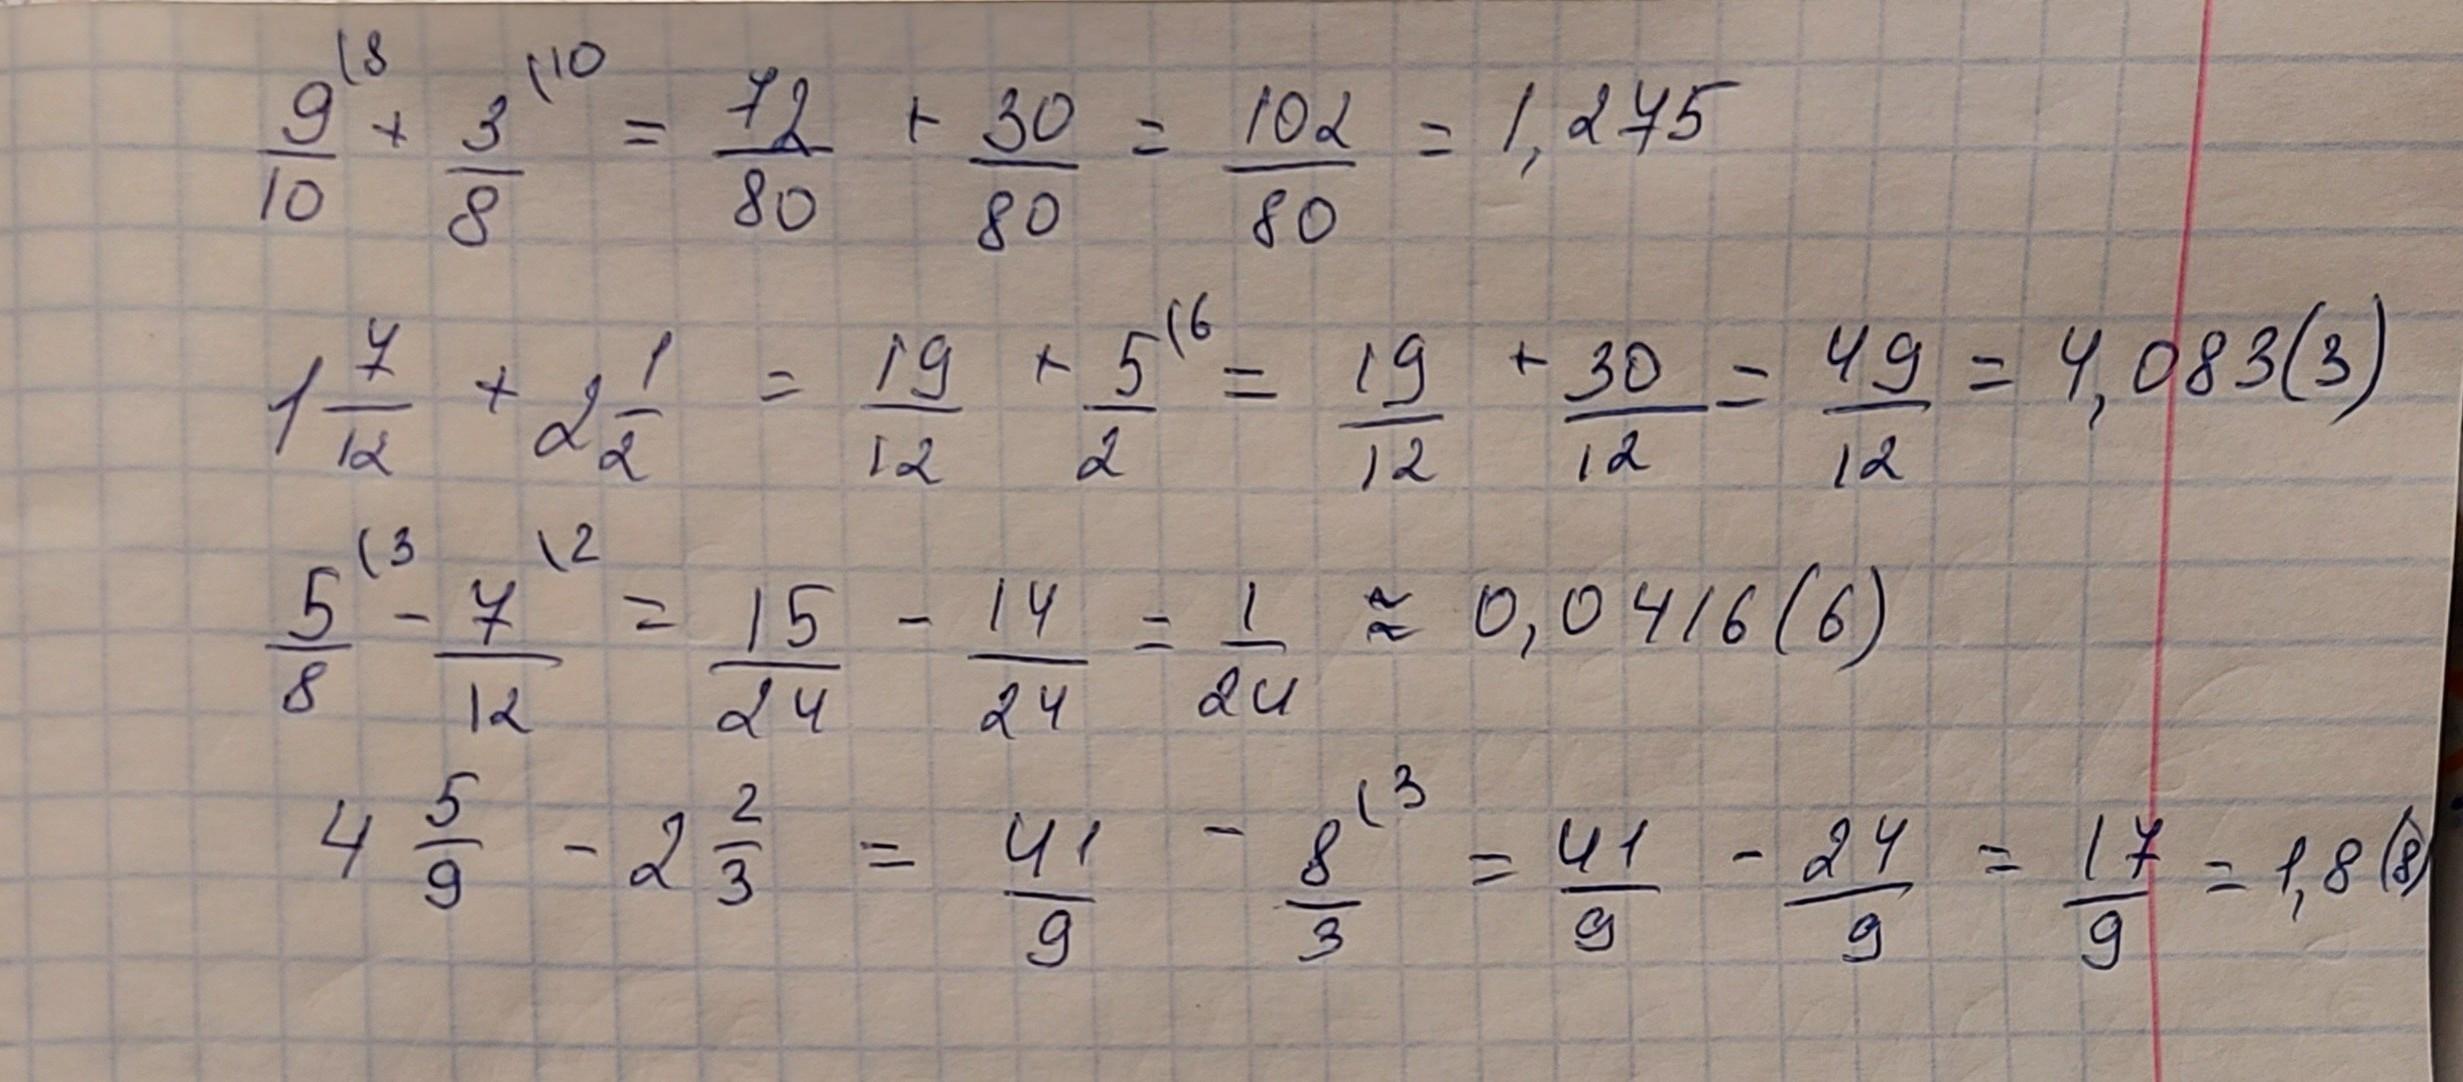 9/10 (8 + 3/8 (10 = 72/80 + 30/80 = 102/80 = 1,275
1 7/12 + 2 1/2 = 19/12 + 5/2 (6 = 19/12 + 30/12 = 49/12 = 4,083(3)
5/8 (3 - 7/12 (2 = 15/24 - 14/24 = 1/24 ≈ 0,0416(6)
4 5/9 - 2 2/3 = 41/9 - 8/3 (3 = 41/9 - 24/9 = 17/9 = 1,8(8)